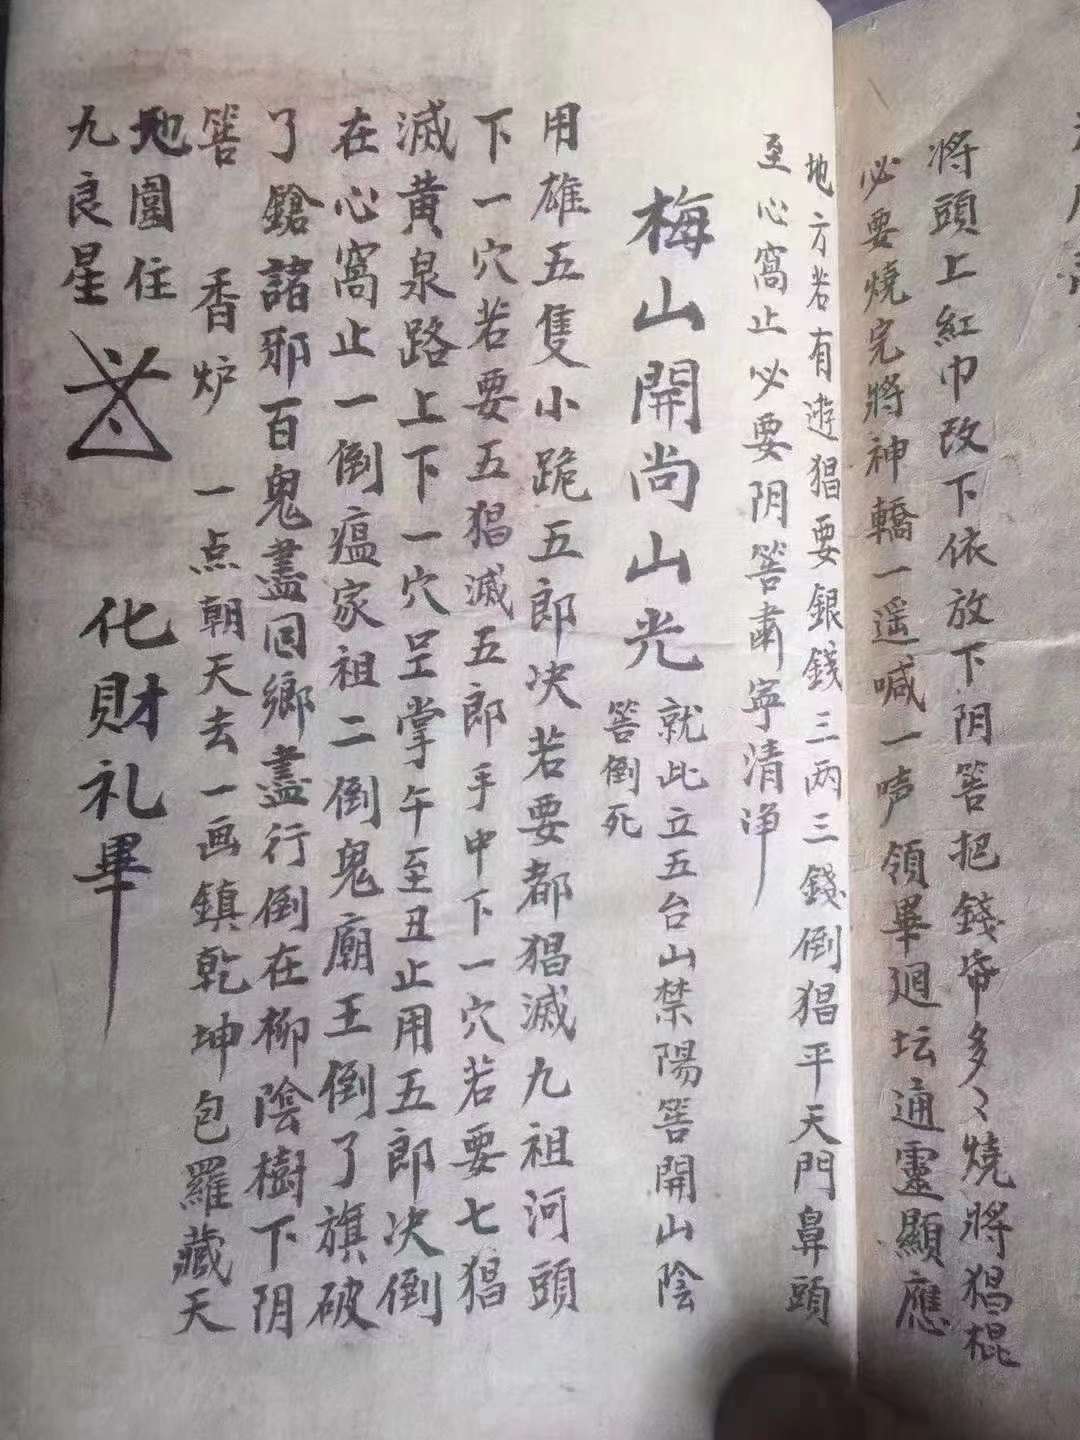 將頭上紅巾改下依放下阴筶把錢帋多々燒將猖棍
必要燒完將神轎一遥喊一声領畢廻坛通靈顯應
地方若有遊猖要銀錢三两三錢倒猖平天門鼻頭
至心窩止必要阴筶肅寧清净
梅山開尚山光
就此立五台山禁陽筶開山陰
筶倒死
用雄五隻小跪五郎决若要都猖滅九祖河頭
下一穴若要五猖滅五郎手中下一穴若要七猖
滅黄泉路上下一穴呈掌午至丑止用五郎决倒
在心窩止一倒瘟家祖二倒鬼廟王倒了旗破
了鎗諸邪百鬼盡回鄉盡行倒在柳陰樹下阴
筶 香炉 一点朝天去一画鎮乾坤包羅藏天
地圍住
九良星
化財礼畢